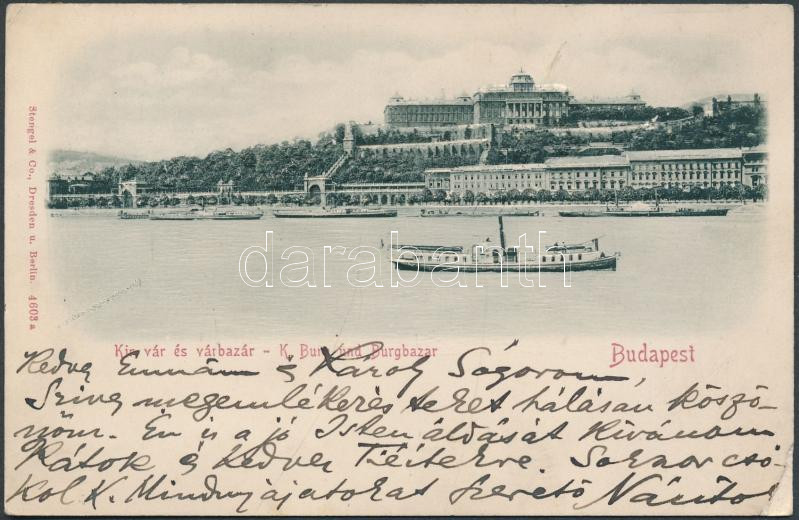 Stengel & Co., Dresden u. Berlin. 4603a
darabanth
Kir. vár és várbazár - K. Burg und Burgbazar
Budapest
Kedves Emmám és Károly Sógorom,
Szíves megemlékezésteket hálásan köszö-
nöm. Én is a jó Isten áldását kívánom
Rátok és kedves Tiéitekre. Sokszor csó-
kol K. Mindnyájatokat szerető